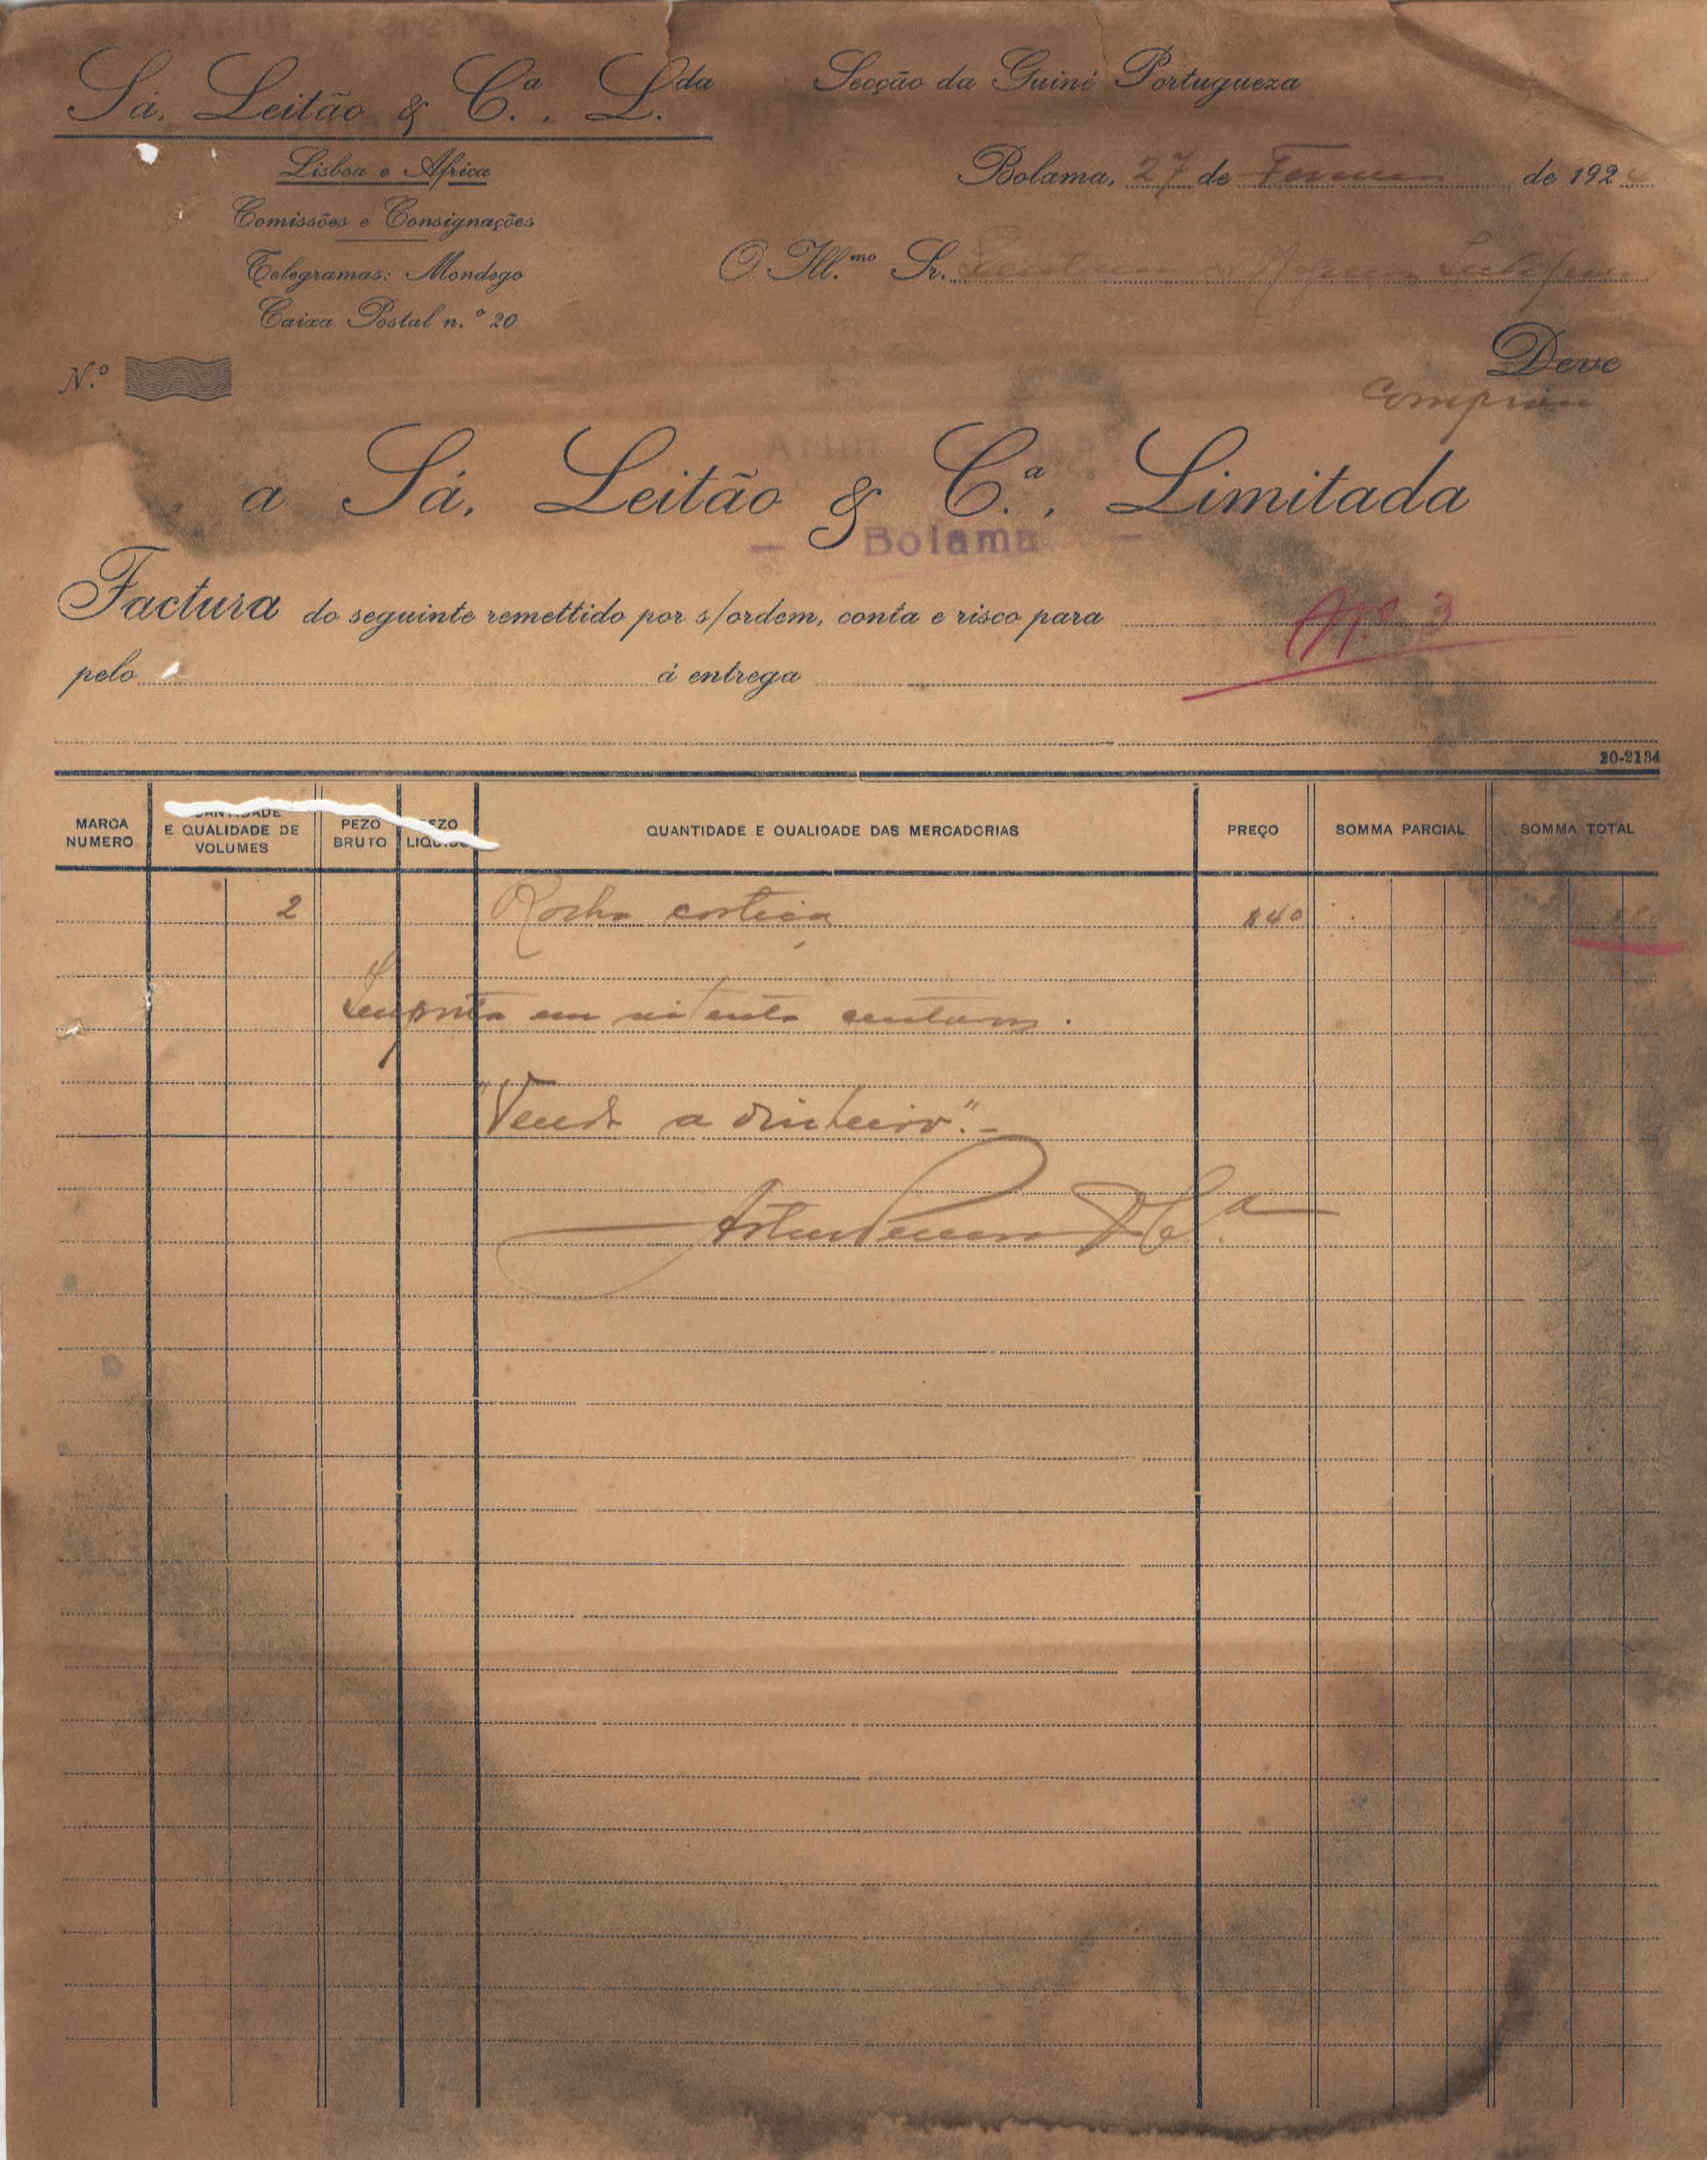 Sá, Leitão & C.ª, L.da
Secção da Guiné Portugueza
Lisboa e Africa
Bolama, 27 de de 192
Comissões e Consignações
O Ill.mo Sr.
Telegramas: Mondego
Caixa Postal n.º 20
Deve
N.º
a Sá, Leitão & C.ª, Limitada
— Bolama —
Factura do seguinte remettido por s/ordem, conta e risco para
Nº 3
pelo á entrega
20-2134
MARCA NUMERO
QUANTIDADE E QUALIDADE DE VOLUMES
PEZO BRUTO
PEZO LIQUIDO
QUANTIDADE E QUALIDADE DAS MERCADORIAS
PREÇO
SOMMA PARCIAL
SOMMA TOTAL
2 cortiça $40
em centavos.
"Venda a dinheiro".-
Artur & C.ª